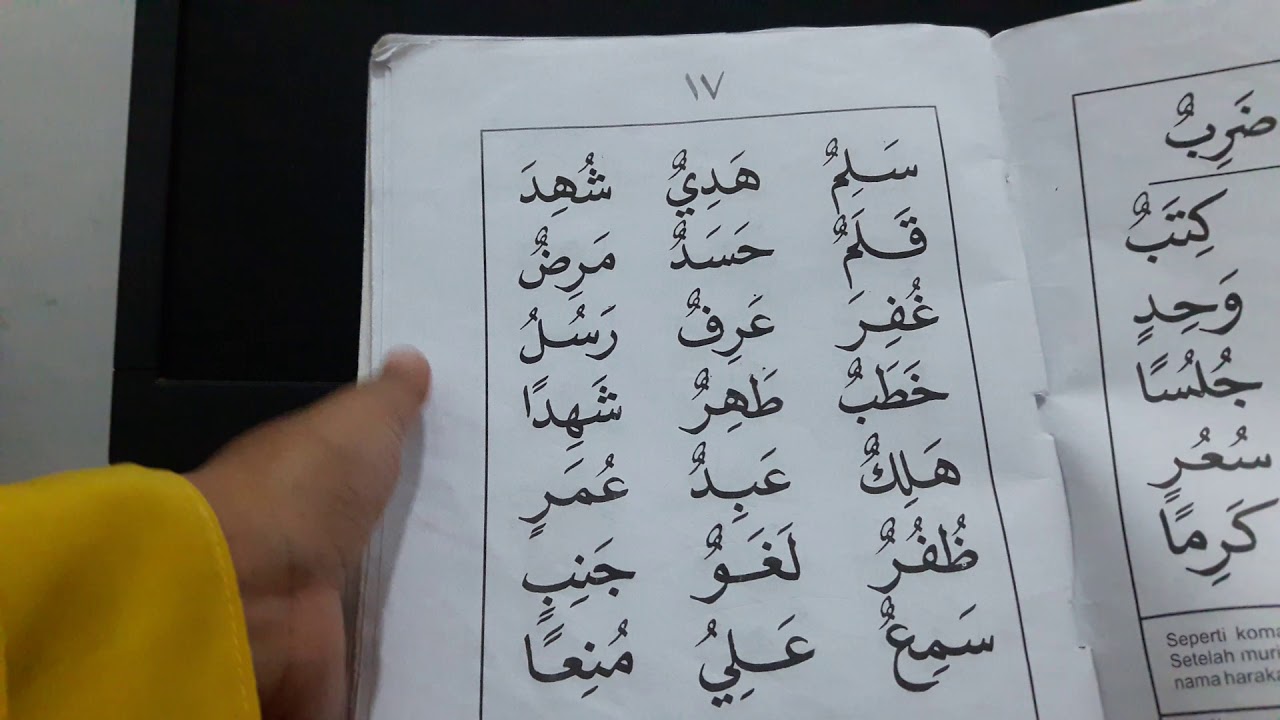 ١٧
سَلِمٌ هَدِيٌ شُهِدَ
قَلَمٌ حَسَدٌ مَرِضٌ
غُفِرَ عَرِفٌ رَسُلُ
خَطَبٌ طَهِرٌ شَهِدًا
هَلِكٌ عَبِدٌ عُمَرٍ
ظُفُرٌ لَغَوٌ جَنِبٍ
سَمِعٌ عَلِيٌ مُنِعًا
ضَرِبٌ
كِتَبٌ
وَحِدٍ
جُلُسًا
سُعُرٍ
كَرِمًا
Seperti
Setelah
nama